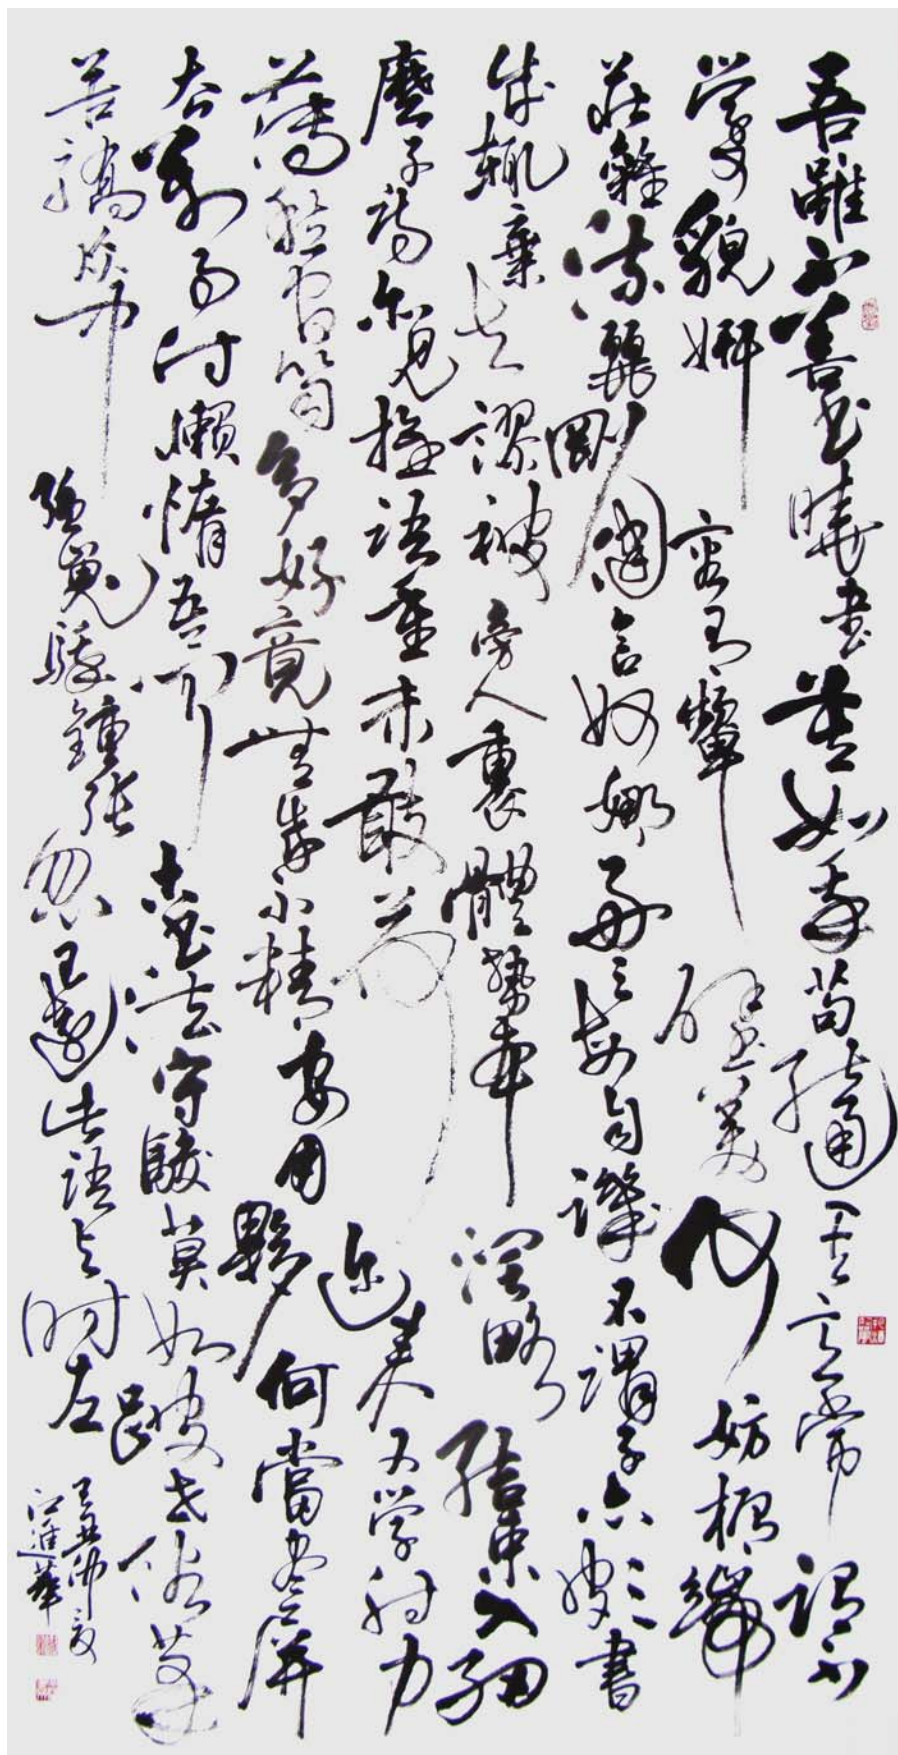 吾雖不善書曉書莫如我苟能通其意常謂不
學可貌妍容有顰璧美何妨橢端
莊雜流麗剛健含婀娜好之每自譏不謂子亦頗書
成輒棄去謬被旁人裹體勢本闊略結束入細
麼子詩亦見推語重未敢荷邇來又學射力
薄愁官笴多好竟無成不精安用夥何當盡屏
去萬事付懶惰吾聞古書法守駿莫如跛世俗筆
苦驕眾中強嵬騀鍾張忽已遠此語與時左
己丑仲夏
江進華